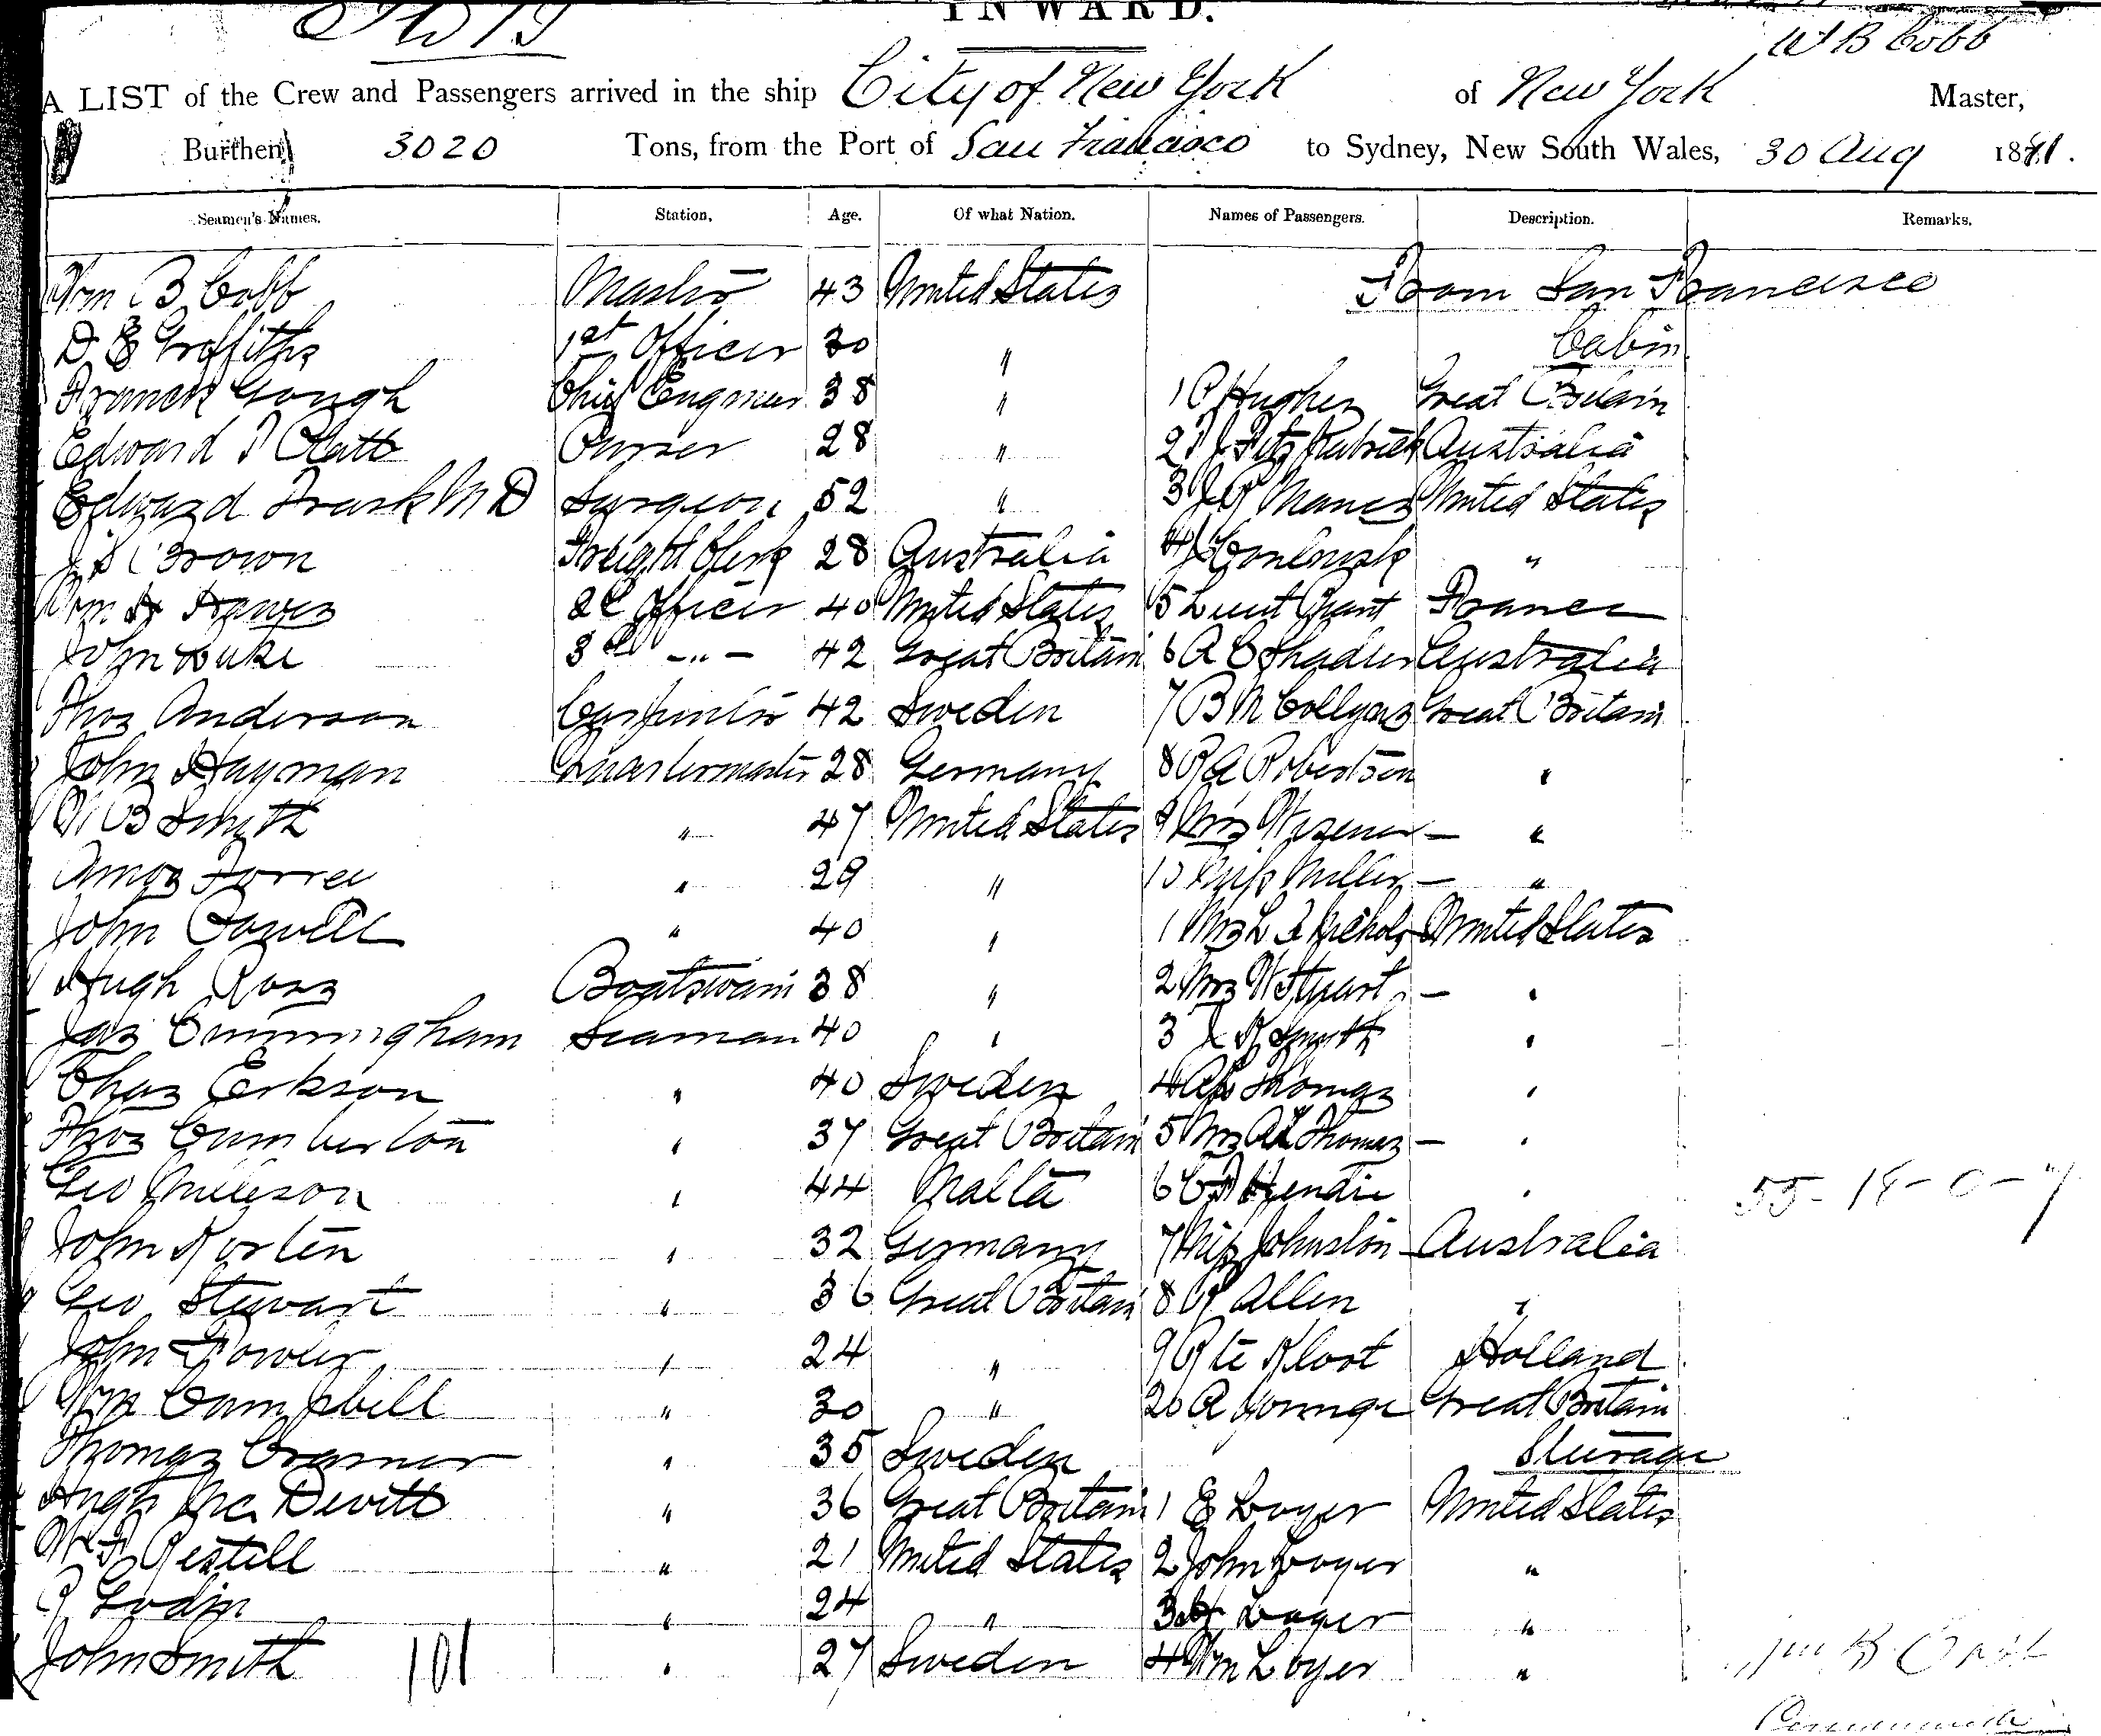 INWARD.
W B Cobb
A LIST of the Crew and Passengers arrived in the ship City of New York of New York Master,
Burthen 3020 Tons, from the Port of San Francisco to Sydney, New South Wales, 30 Aug 1881.
Seamen's Names. Station, Age. Of what Nation. Names of Passengers. Description. Remarks.
Wm B Cobb Master 43 United States From San Francisco
D E Griffiths 1st Officer 30 " Cabin
Francis Gough Chief Engineer 38 " 1 P Hughes Great Britain
Edward Platt Purser 28 " 2 Fitz Patrick Australia
Edward Trask MD Surgeon 52 " 3 United States
Brown Freight Clerk 28 Australia 4 "
Wm H Hawes 2d Officer 40 United States 5 Lieut Grant France
John Duke 3d -"- 42 Great Britain 6 A C Australia
Thos Anderson Carpenter 42 Sweden 7 B M Great Britain
John Hayman Quartermaster 28 Germany 8 R A Robertson "
W B Smyth " 47 United States 9 Mrs — "
Amos " 29 " 10 Miss Miller — "
John Powell " 40 " 1 Mrs L Nichols United States
Hugh Ross Boatswain 38 " 2 Mrs W Stuart — "
Jas Cunningham Seaman 40 " 3 Smyth "
Chas Erkson " 40 Sweden 4 Thomas "
Thos Cumberton " 37 Great Britain 5 Mrs Thomas — "
Geo " 44 Malta 6 Hendrie " 55-18-0-7
John Korten " 32 Germany 7 Miss Johnston Australia
Geo Stewart " 36 Great Britain 8 Allen "
John Fowler " 24 " 9 P te Kloot Holland
Wm Campbell " 30 " 20 A Younge Great Britain
Thomas Cramer " 35 Sweden Steerage
Hugh Mc Devitt " 36 Great Britain 1 E Loyer United States
Restell " 21 United States 2 John Loyer "
P Godin " 24 " 3 Loyer "
John Smith 101 " 27 Sweden 4 Wm Loyer "